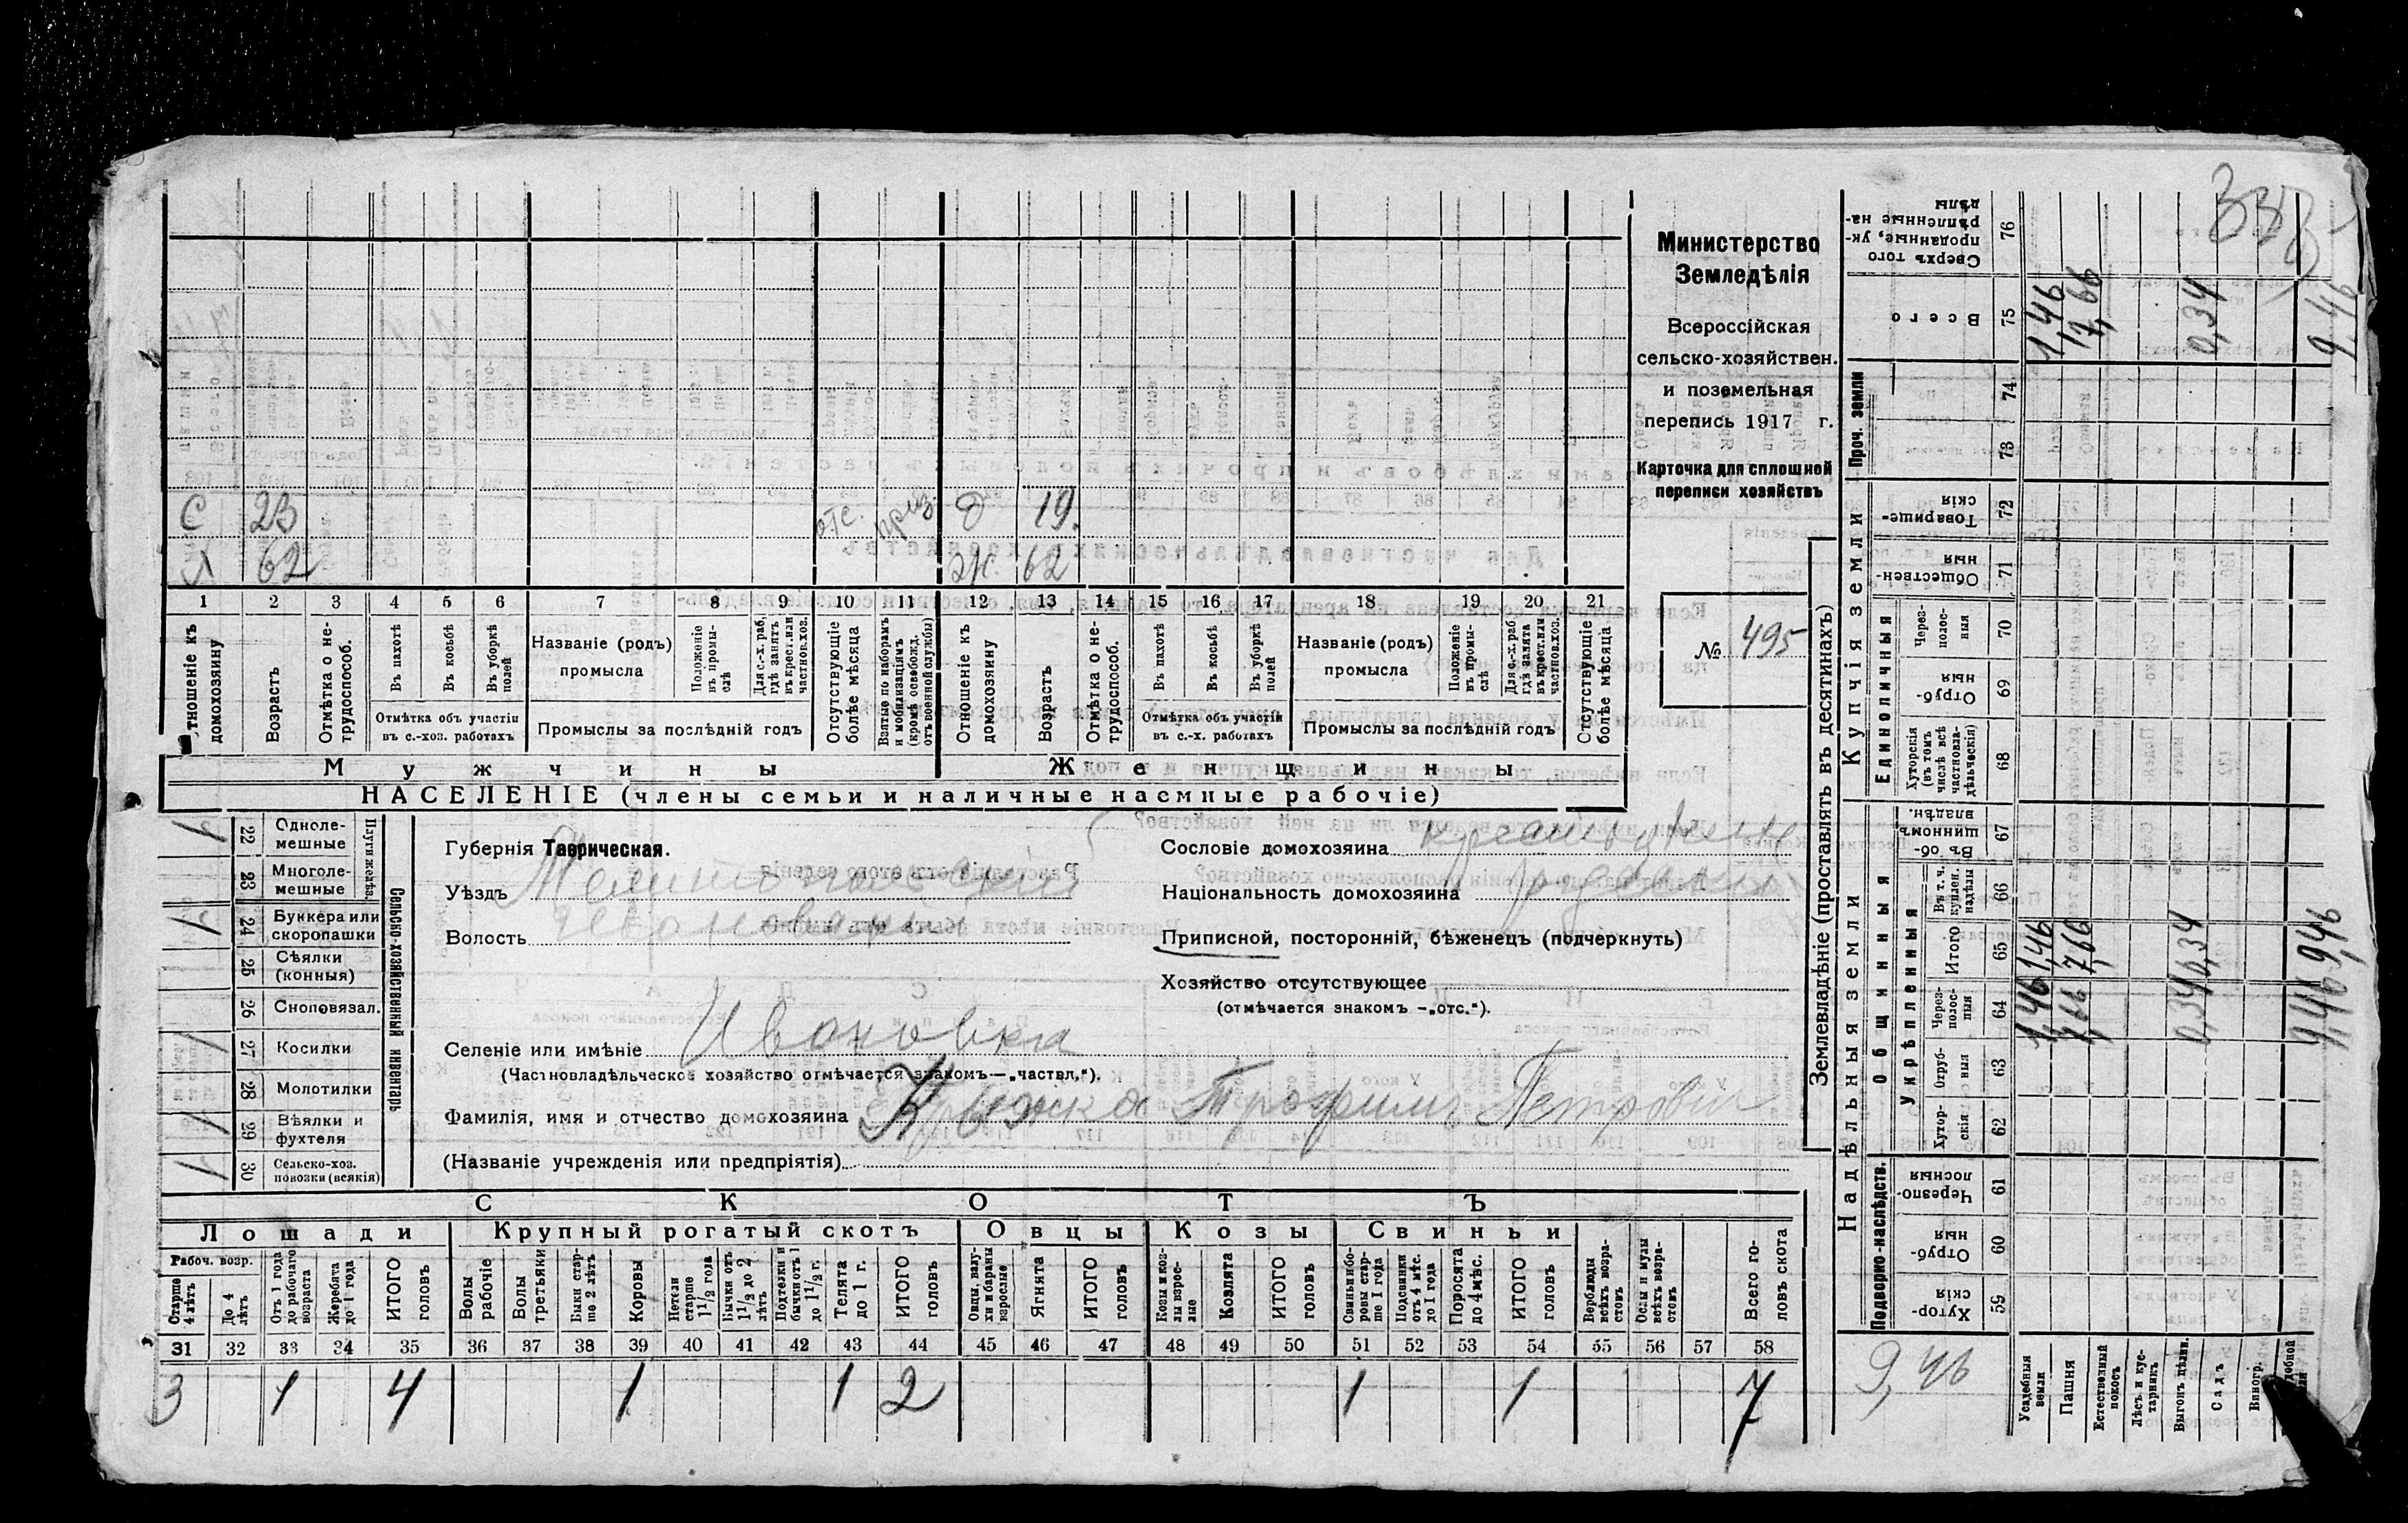 333
Министерство
Земледѣлія
Всероссійская
сельско-хозяйствен.
и поземельная
перепись 1917 г.
Карточка для сплошной
переписи хозяйствъ
№ 495
С 23 отс. приз. д 19.
62 Ж. 62
1 2 3 4 5 6 7 8 9 10 11 12 13 14 15 16 17 18 19 20 21
тношеніе къ домохозяину
Возрастъ
Отмѣтка о нетрудоспособ.
Въ пахотѣ
Въ косьбѣ
Въ уборкѣ полей
Отмѣтка объ участіи въ с.-хоз. работахъ
Названіе (родъ) промысла
Положеніе въ промыслѣ
Для с.-х. раб. гдѣ занятъ въ крест. или частнов. хоз.
Промыслы за послѣдній годъ
Отсутствующіе болѣе мѣсяца
Взятые по наборамъ и мобилизаціямъ (кромѣ освобожд. отъ военной службы)
Отношеніе къ домохозяину
Возрастъ
Отмѣтка о нетрудоспособ.
Въ пахотѣ
Въ косьбѣ
Въ уборкѣ полей
Отмѣтка объ участіи въ с.-х. работахъ
Названіе (родъ) промысла
Положеніе въ промыслѣ
Для с.-х. раб. гдѣ занята въ крест. или частнов. хоз.
Промыслы за послѣдній годъ
Отсутствующіе болѣе мѣсяца
Мужчины Женщины
НАСЕЛЕНІЕ (члены семьи и наличные наемные рабочіе)
Сельско-хозяйственный инвентарь
Плуги желѣз.
22 Однолемешные
23 Многолемешные
24 Буккера или скоропашки
25 Сѣялки (конныя)
26 Сноповязал.
27 Косилки
28 Молотилки
29 Вѣялки и фухтеля
30 Сельско-хоз. повозки (всякія)
Губернія Таврическая.
Уѣздъ Мелитопольскій
Волость Ивановская
Селеніе или имѣніе Ивановка
(Частновладѣльческое хозяйство отмѣчается знакомъ—„частвл.“).
Фамилія, имя и отчество домохозяина Трофимъ Петровъ
(Названіе учрежденія или предпріятія)
Сословіе домохозяина
Національность домохозяина
Приписной, посторонній, бѣженецъ (подчеркнуть)
Хозяйство отсутствующее
(отмѣчается знакомъ —„отс.“).
СКОТЪ
Лошади Крупный рогатый скотъ Овцы Козы Свиньи
Рабоч. возр.
Старше 4 лѣтъ
До 4 лѣтъ
Отъ 1 года до рабочаго возраста
Жеребята до 1 года
ИТОГО головъ
Волы рабочіе
Волы третьяки
Быки старше 2 лѣтъ
Коровы
Нетели старше 1 1/2 года
Бычки отъ 1 1/2 до 2 лѣтъ
Подтелки и бычки отъ 1 до 1 1/2 г.
Телята до 1 г.
ИТОГО головъ
Овцы, валухи и бараны взрослые
Ягнята
ИТОГО головъ
Козы и козлы взрослые
Козлята
ИТОГО головъ
Свиньи и боровы старше 1 года
Подсвинки отъ 4 мѣс. до 1 года
Поросята до 4 мѣс.
ИТОГО головъ
Верблюды всѣхъ возрастовъ
Ослы и мулы всѣхъ возрастовъ
Всего головъ скота
31 32 33 34 35 36 37 38 39 40 41 42 43 44 45 46 47 48 49 50 51 52 53 54 55 56 57 58
3 1 4 1 1 2 1 1 7
Землевладѣніе (проставлять въ десятинахъ)
Надѣльныя земли Купчія земли Проч. земли
Подворно-наслѣдств.
Общинныя
Укрѣпленныя
Единоличныя
Хуторскія 59
Отрубныя 60
Черезполосныя 61
Хуторскія 62
Отрубныя 63
Черезполосныя 64
Итого 65
Въ т. ч. куплен. надѣлы 66
Въ общинномъ владѣн. 67
Хуторскія (въ томъ числѣ всѣ частновладѣльческія) 68
Отрубныя 69
Черезполосныя 70
Общественныя 71
Товарищескія 72
73
74
Всего 75
Сверхъ того проданные, укрѣпленные надѣлы 76
Усадебныя земли 1,46 1,46 1,46
Пашня 7,66 7,66 7,66
Естественный покосъ
Лѣсъ и кустарникъ
Выгонъ цѣлин. 0,34 0,34 0,34
Садъ
Виногр.
9,46 9,46 9,46
9,46